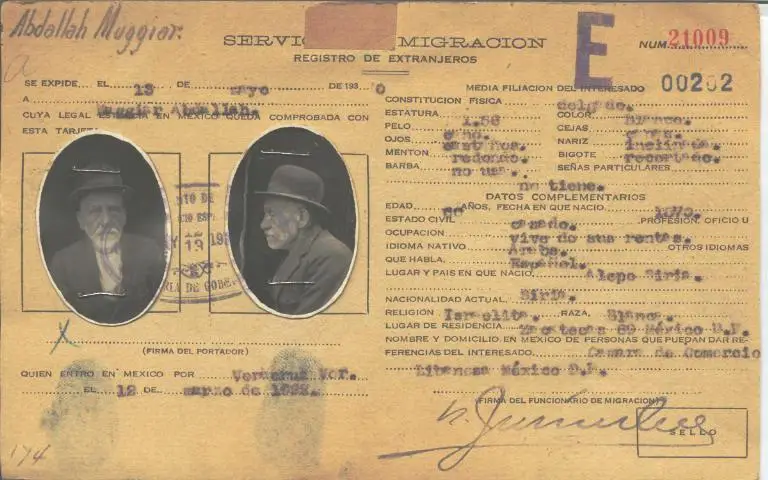 Abdallah Muggiar.
SERVICIO MIGRACION
REGISTRO DE EXTRANJEROS
NUM. 21009
E
00202
SE EXPIDE EL 13 DE mayo DE 1930
A Muggiar Abdallah.
CUYA LEGAL ESTANCIA EN MEXICO QUEDA COMPROBADA CON
ESTA TARJETA
13
(FIRMA DEL PORTADOR)
QUIEN ENTRO EN MEXICO POR Veracruz Ver.
EL 12 DE marzo de
174
MEDIA FILIACION DEL INTERESADO
CONSTITUCION FISICA delgado.
ESTATURA 1.56 COLOR Blanco.
PELO cano. CEJAS
OJOS NARIZ inclinada.
MENTON redondo. BIGOTE recortado.
BARBA no usa. SEÑAS PARTICULARES
no tiene.
DATOS COMPLEMENTARIOS
EDAD AÑOS, FECHA EN QUE NACIO
ESTADO CIVIL casado. PROFESION, OFICIO U
OCUPACION vive de sus rentas.
IDIOMA NATIVO Arabe. OTROS IDIOMAS
QUE HABLA, Español.
LUGAR Y PAIS EN QUE NACIO, Alepo Siria.
NACIONALIDAD ACTUAL, Siria.
RELIGION Israelita. RAZA, Blanca.
LUGAR DE RESIDENCIA Zacatecas 69 México D.F.
NOMBRE Y DOMICILIO EN MEXICO DE PERSONAS QUE PUEDAN DAR RE-
FERENCIAS DEL INTERESADO. Camara de Comercio
Libanesa México D.F.
(FIRMA DEL FUNCIONARIO DE MIGRACION)
SELLO